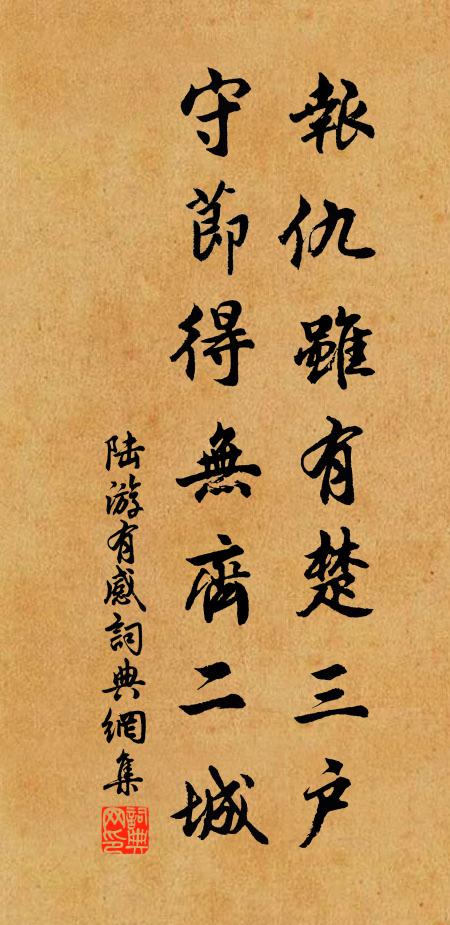 報仇雖有楚三户
守節得無齊二城
陆游有感詞典網集
詞典网印